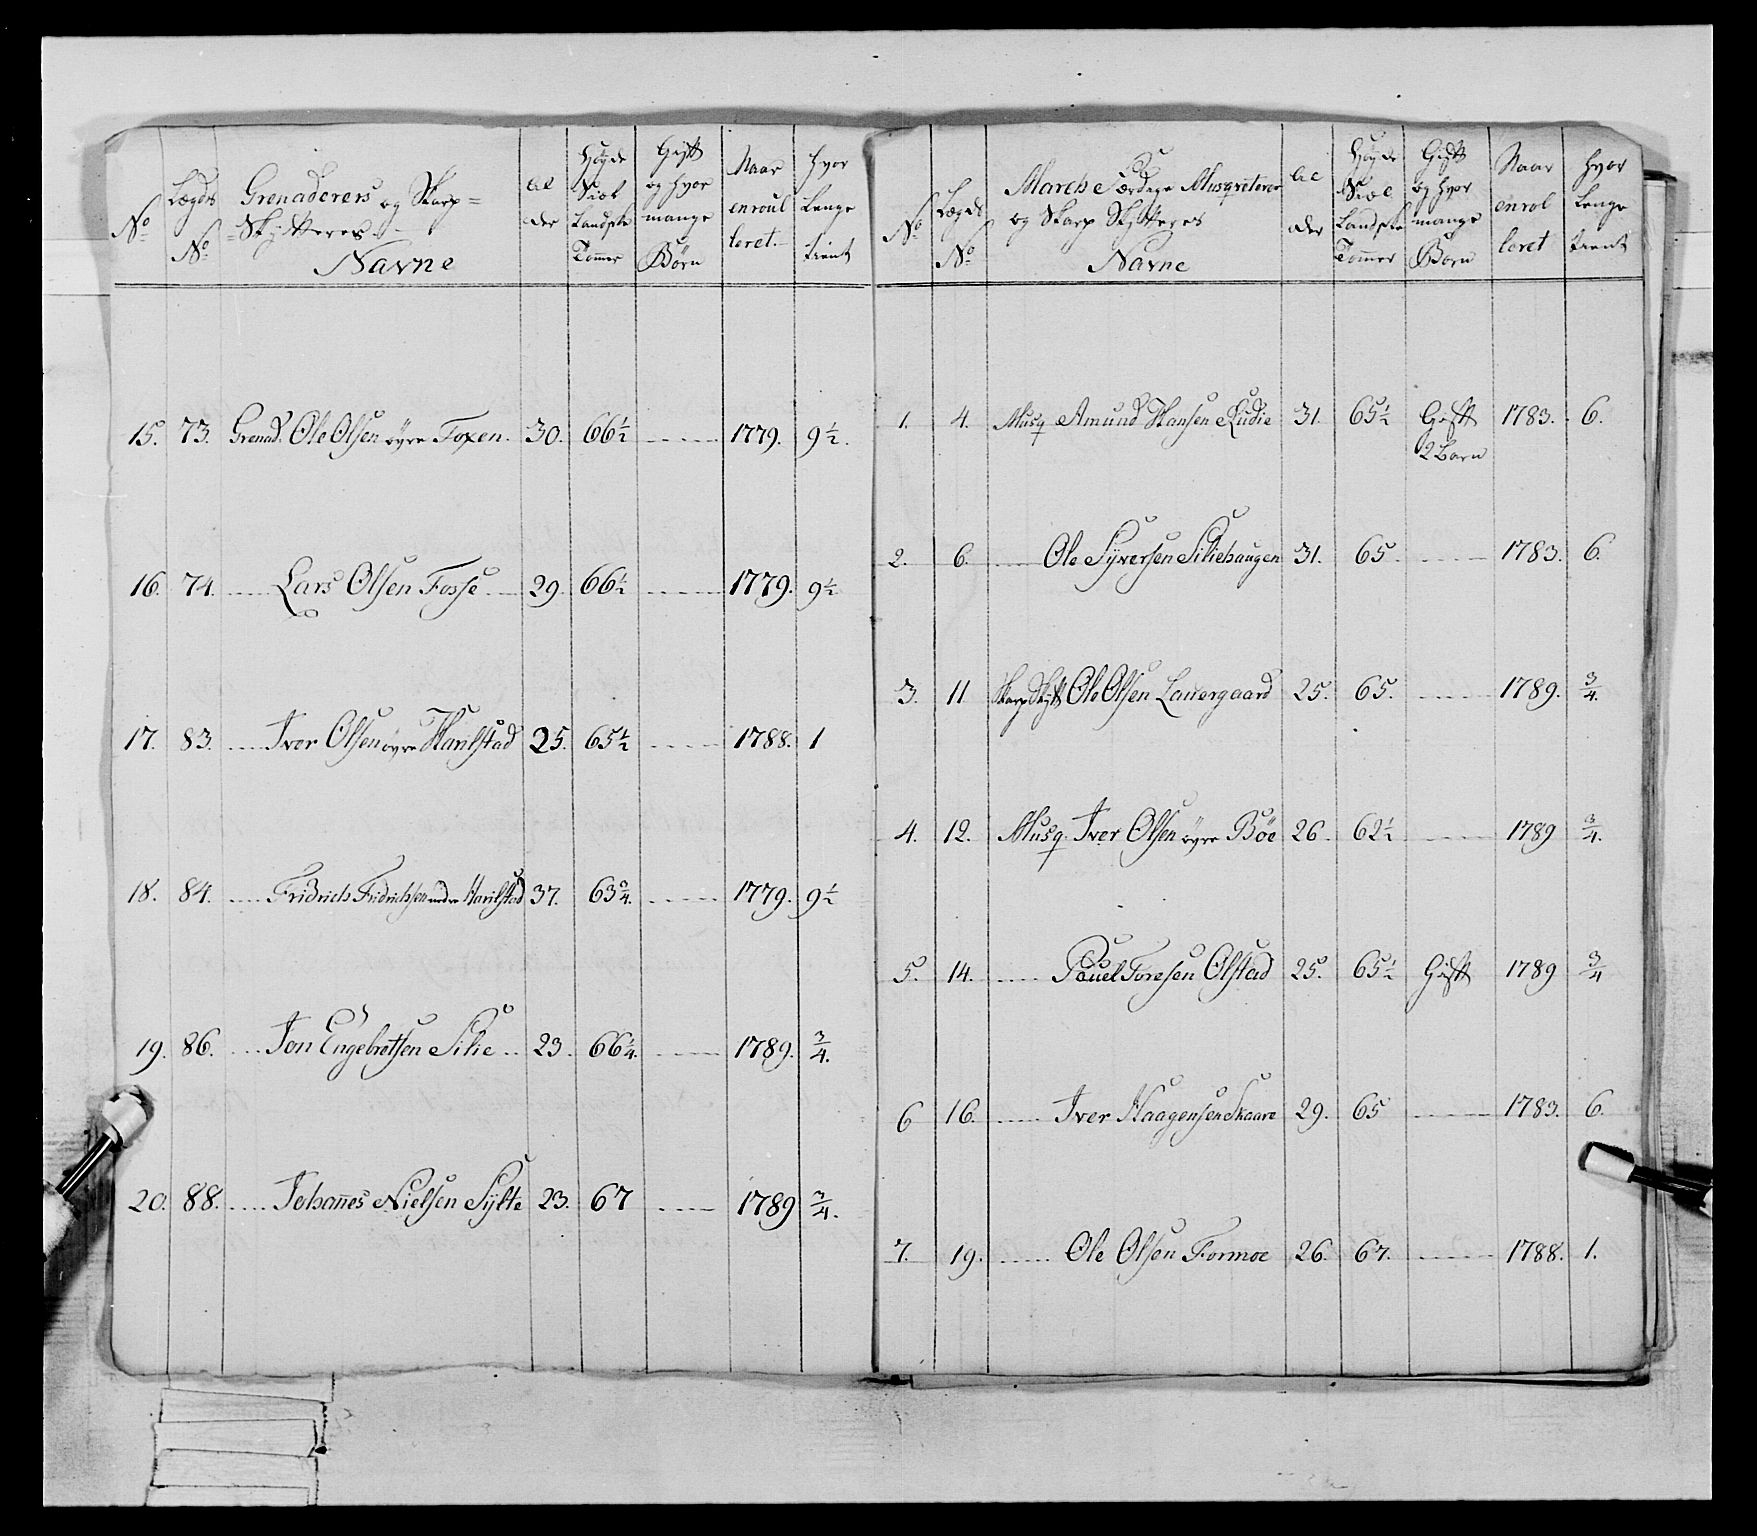 No
Lægds No
Grenaderers og Skarp=
=Skÿtteres.
Navne
Al
der
Høyde
Landske
Tommer
Gift
og hvor
mange
Børn
Naar
enroul
leret.
hvor
Lenge
tient
15. 73. Grenad. Ole Olsen øvre Foxen. 30. 66½ 1779. 9½.
16. 74. Lars Olsen Fosse. 29. 66½ 1779. 9½
17. 83. Iver Olsen øvre Harilstad 25. 65½ 1788. 1
18. 84. Fridrich Fridrichsen nedre Harilstad 37. 63¾. 1779. 9½
19. 86. Jon Engebretsen Silie 23. 66¼. 1789. ¾.
20. 88. Johannes Nielsen Sÿlte 23. 67 1789 ¾.
No
Lægds
No
Marche Færdige Musqveterer
og Skarp Skÿtteres
Navne
Al
der
Høyde
Landske
Tommer
Gift
og hvor
mange
Børn
Naar
enrol
leret
hvor
Lenge
tient
1. 4. Musq Amund Hansen Rudie 31. 65½ Gift 1783. 6.
2 Barn
2. 6. Ole Sÿversen Siliehaugen 31. 65 1783. 6.
3. 11 Skarp Skÿtt Ole Olsen Lauergaard 25. 65. 1789. ¾
4. 12. Musq. Iver Olsen øvre Bøe 26. 62½ 1789 ¾.
5. 14. Pouel Toresen Olstad 25. 65½ Gift 1789 ¾
6 16. Iver Haagensen Skaare 29. 65 1783. 6.
7. 19. Ole Olsen Formoe 26. 67. 1788. 1.